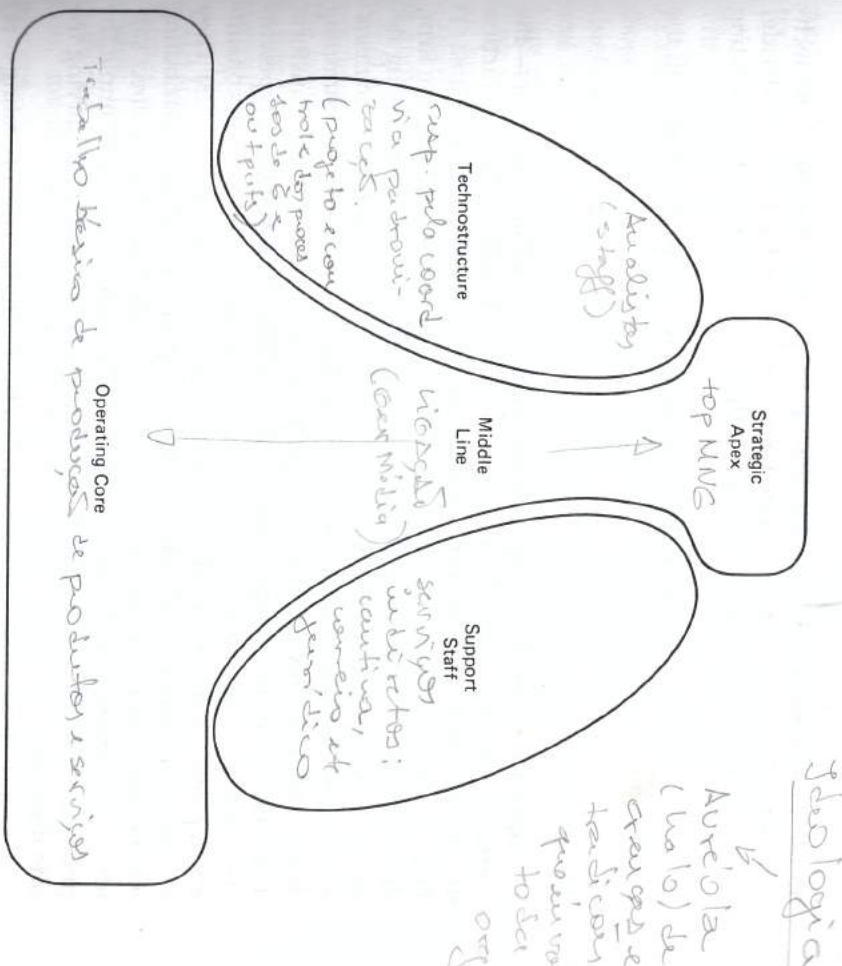 Ideologia
Strategic
Apex
top MNG
Auréola
(halo) de
crenças e
tradições
que envo
toda
org
Analistas
(staff)
Technostructure
resp. pela coord
via padroni-
zação.
(projeto e con
trole dos proces
sos de e
outputs)
Middle
Line
ligação
(Ger Média)
Support
Staff
serviços
indirectos:
cantina,
correio etc
jurídico
Operating Core
Trabalho básico de produção de produtos e serviços